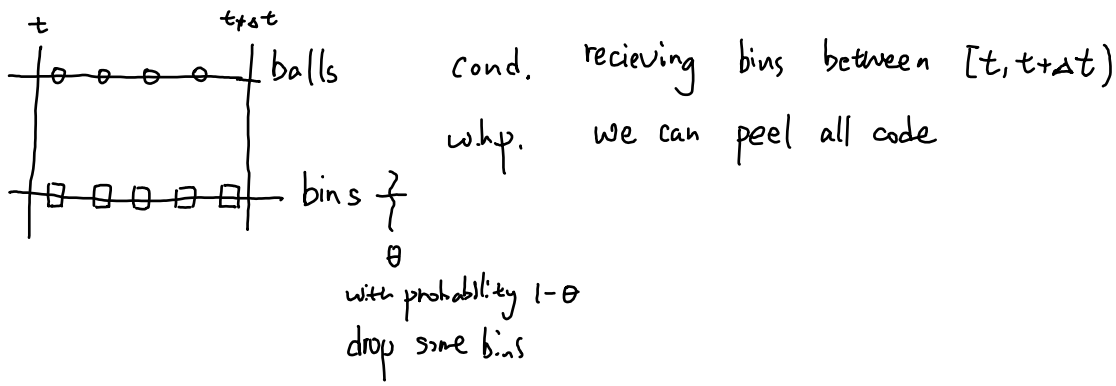 t t+Δt
balls
bins
θ
with probability 1-θ
drop some bins
cond. recieving bins between [t, t+Δt)
w.h.p. we can peel all code